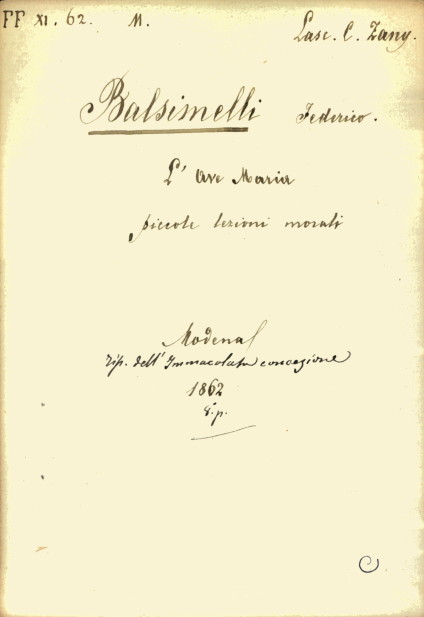 FF XI. 62. M. Lasc. C. Zany.
Balsimelli Federico.
L' Ave Maria
piccole lezioni morali
Modena
Tip. dell' Immacolata concezione
1862
8.° p.